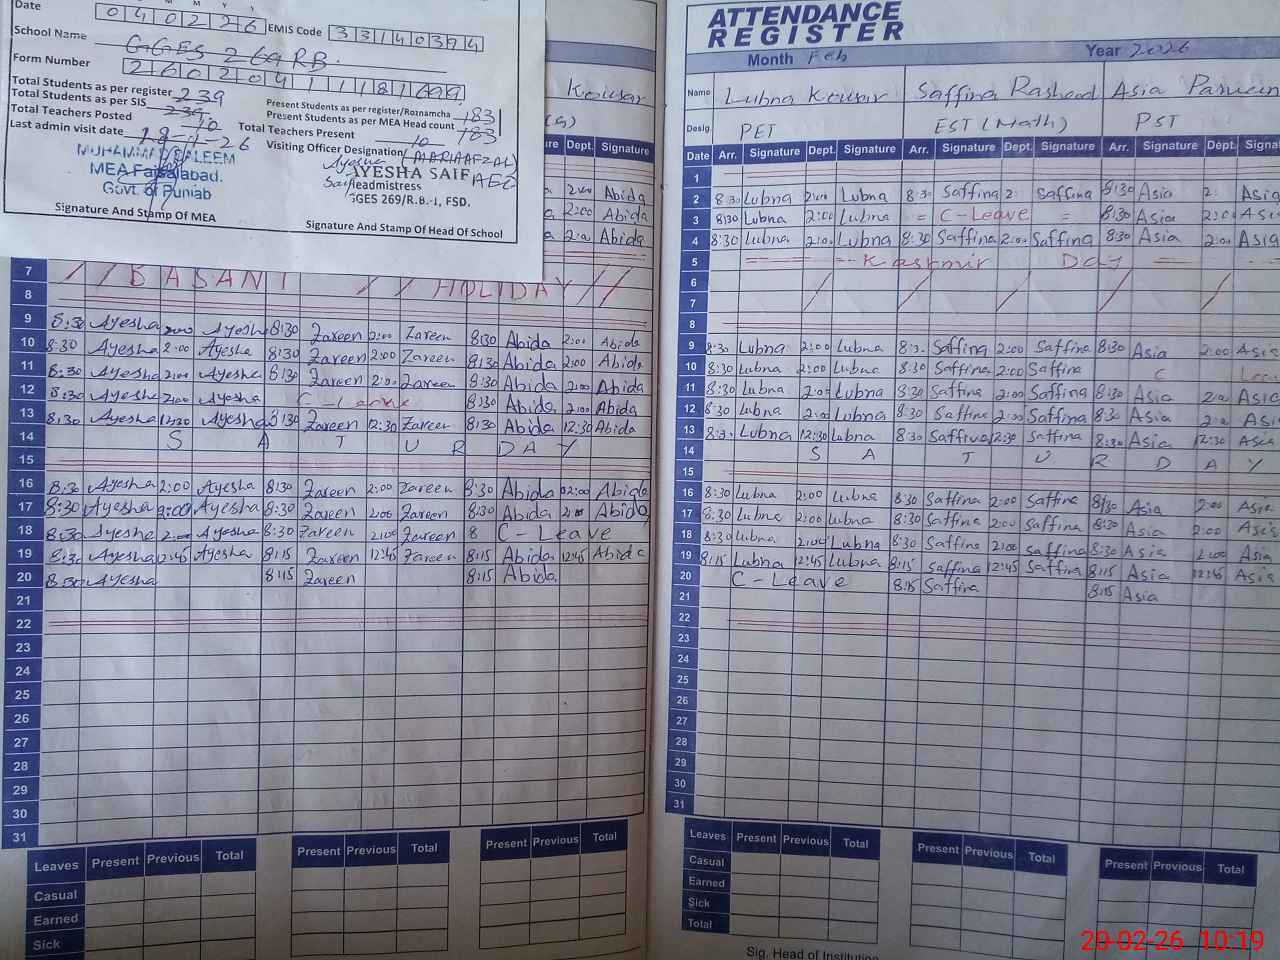 Date 040226 EMIS Code 33140394
School Name GGES 269 RB.
Form Number
Total Students as per register 239
Total Students as per SIS 239
Total Teachers Posted 10
Last admin visit date
Present Students as per register/Roznamcha 183
Present Students as per MEA Head count 183
Total Teachers Present 10
Visiting Officer Designation
MEA Faisalabad.
Govt of Punjab
AYESHA SAIF
Headmistress
GGES 269/R.B.-I, FSD.
Signature And Stamp Of MEA
Signature And Stamp Of Head Of School
Kousar
Dept. Signature
2:00 Abida
2:00 Abida
2:00 Abida
7 BASANT HOLIDAY
8
9 8:30 Ayesha 2:00 Ayesha 8:30 Zareen 2:00 Zareen 8:30 Abida 2:00 Abida
10 8:30 Ayesha 2:00 Ayesha 8:30 Zareen 2:00 Zareen 8:30 Abida 2:00 Abida
11 8:30 Ayesha 2:00 Ayesha 8:30 Zareen 2:00 Zareen 8:30 Abida 2:00 Abida
12 8:30 Ayesha 2:00 Ayesha C-Leave 8:30 Abida 2:00 Abida
13 8:30 Ayesha 12:30 Ayesha 8:30 Zareen 12:30 Zareen 8:30 Abida 12:30 Abida
14 S A T U R D A Y
15
16 8:30 Ayesha 2:00 Ayesha 8:30 Zareen 2:00 Zareen 8:30 Abida 02:00 Abida
17 8:30 Ayesha 2:00 Ayesha 8:30 Zareen 2:00 Zareen 8:30 Abida 2:00 Abida
18 8:30 Ayesha 2:00 Ayesha 8:30 Zareen 2:00 Zareen 8 C-Leave
19 8:30 Ayesha 12:45 Ayesha 8:15 Zareen 12:45 Zareen 8:15 Abida 12:45 Abida
20 8:30 Ayesha 8:15 Zareen 8:15 Abida
21
22
23
24
25
26
27
28
29
30
31
Leaves Present Previous Total Present Previous Total Present Previous Total
Casual
Earned
Sick
ATTENDANCE
REGISTER
Month Feb Year 2026
Name Lubna Kousar Saffina Rasheed Asia Parveen
Desig. PET EST (Math) PST
Date Arr. Signature Dept. Signature Arr. Signature Dept. Signature Arr. Signature Dept.
1
2 8:30 Lubna 2:00 Lubna 8:30 Saffina 2: Saffina 8:30 Asia 2: Asia
3 8:30 Lubna 2:00 Lubna = C-Leave = 8:30 Asia 2:00 Asia
4 8:30 Lubna 2:00 Lubna 8:30 Saffina 2:00 Saffina 8:30 Asia 2:00 Asia
5 Kashmir Day
6
7
8
9 8:30 Lubna 2:00 Lubna 8:30 Saffina 2:00 Saffina 8:30 Asia 2:00 Asia
10 8:30 Lubna 2:00 Lubna 8:30 Saffina 2:00 Saffina C
11 8:30 Lubna 2:00 Lubna 8:30 Saffina 2:00 Saffina 8:30 Asia 2:00 Asia
12 8:30 Lubna 2:00 Lubna 8:30 Saffina 2:00 Saffina 8:30 Asia 2:00 Asia
13 8:30 Lubna 12:30 Lubna 8:30 Saffina 12:30 Saffina 8:30 Asia 12:30 Asia
14 S A T U R D A Y
15
16 8:30 Lubna 2:00 Lubna 8:30 Saffina 2:00 Saffina 8:30 Asia 2:00 Asia
17 8:30 Lubna 2:00 Lubna 8:30 Saffina 2:00 Saffina 8:30 Asia 2:00 Asia
18 8:30 Lubna 2:00 Lubna 8:30 Saffina 2:00 Saffina 8:30 Asia 2:00 Asia
19 8:15 Lubna 12:45 Lubna 8:15 Saffina 12:45 Saffina 8:15 Asia 12:45 Asia
20 C-Leave 8:15 Saffina 8:15 Asia
21
22
23
24
25
26
27
28
29
30
31
Leaves Present Previous Total Present Previous Total Present Previous Total
Casual
Earned
Sick
Total
Sig. Head of Institution
20-02-26 10:19